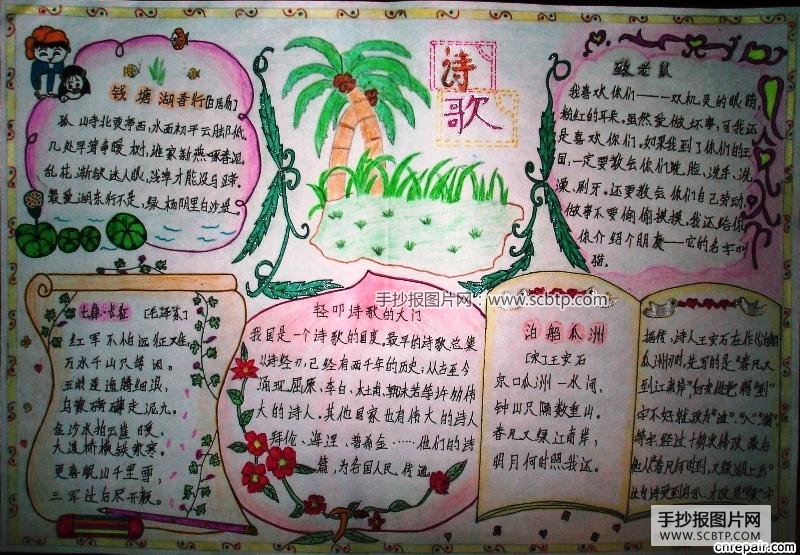 诗
歌
钱塘湖春行[白居易]
孤山寺北贾亭西,水面初平云脚低。
几处早莺争暖树,谁家新燕啄春泥。
乱花渐欲迷人眼,浅草才能没马蹄。
最爱湖东行不足,绿杨阴里白沙堤。
致老鼠
我喜欢你们——双机灵的眼睛,
粉红的耳朵。虽然爱做坏事,可我还
是喜欢你们。如果我到了你们的王
国,一定要教会你们洗脸、洗手、洗
澡、刷牙。还要教会你们自己劳动,
做事不要偷偷摸摸。我还给你
你介绍个朋友——它的名字叫
猫。
七律·长征 [毛泽东]
红军不怕远征难,
万水千山只等闲。
五岭逶迤腾细浪,
乌蒙磅礴走泥丸。
金沙水拍云崖暖,
大渡桥横铁索寒。
更喜岷山千里雪,
三军过后尽开颜。
轻叩诗歌的大门
我国是一个诗歌的国度,最早的诗歌总集
《诗经》,已经有两千年的历史;从古至今
涌现屈原、李白、杜甫、郭沫若等许多伟
大的诗人。其他国家也有伟大的诗人
拜伦、海涅、普希金……他们的诗
篇,为各国人民传诵
手抄报图片网:www.scbtp.com
泊船瓜洲
[宋]王安石
京口瓜洲一水间,
钟山只隔数重山。
春风又绿江南岸,
明月何时照我还。
据传,诗人王安石在作《泊船
瓜洲》时,先写的是“春风又
到江南岸”
字不好就改为“过”、“入”、“满”
等字,经过十几次修改,最后
手抄报图片网
WWW.SCBTP.COM
cnrepair.com